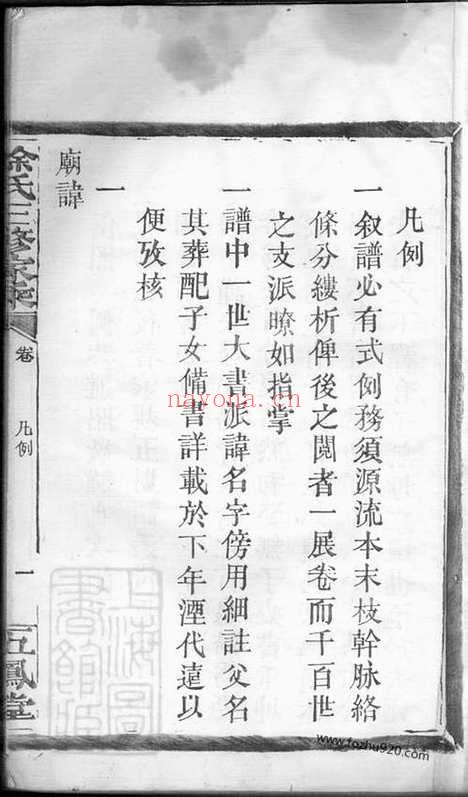 凡例
一叙譜必有式例務須源流本末枝幹脉絡
條分縷析俾後之閲者一展卷而千百世
之支派暸如指掌
一譜中一世大書派諱名字傍用細註父名
其葬配子女備書詳載於下年湮代遠以
便攷核
一
廟諱
徐氏三修家譜
卷
凡例
一
五鳳堂
上海圖書館藏
nayona.cn
www.fozhu920.com